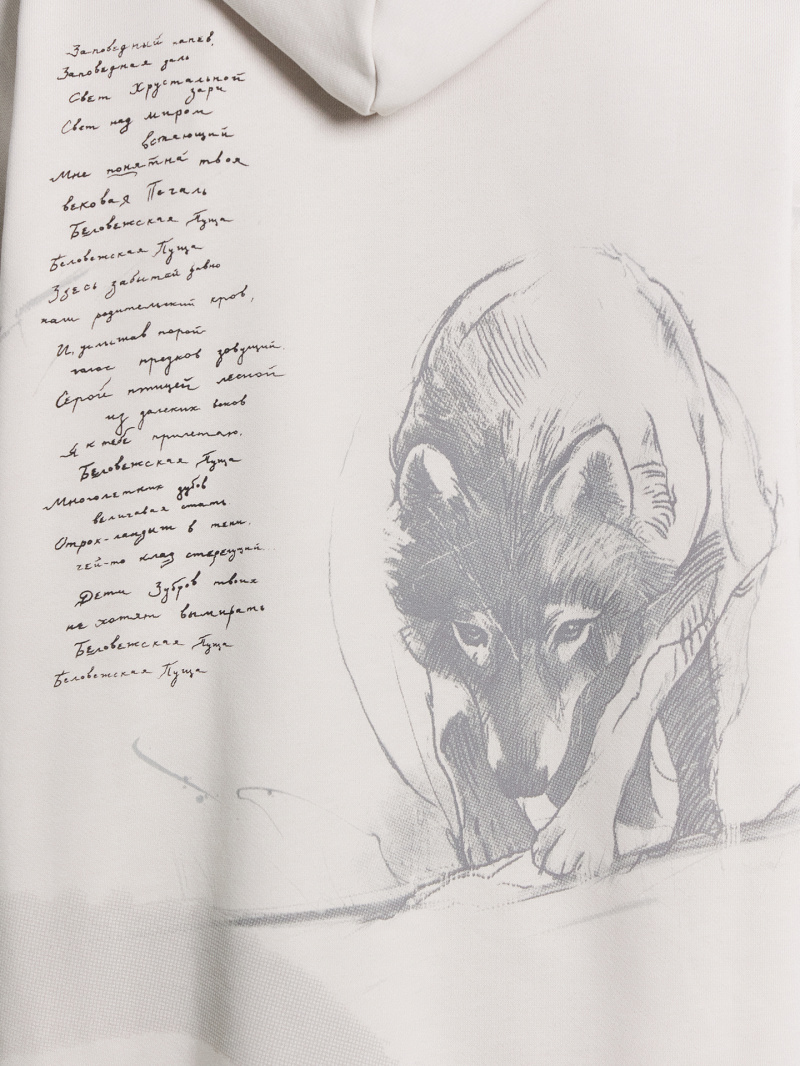 Заповедный напев,
Заповедная даль
Свет Хрустальной
зари
Свет над миром
встающий
Мне понятна твоя
вековая Печаль
Беловежская Пуща
Беловежская Пуща
Здесь забытый давно
наш родительский кров,
И, услышав порой
голос предков зовущий
Серой птицей лесной
из далёких веков
Я к тебе прилетаю,
Беловежская Пуща
Многолетних дубов
величавая стать
Отрок-ландыш в тени,
чей-то клад стерегущий
Дети Зубров твоих
не хотят вымирать
Беловежская Пуща
Беловежская Пуща